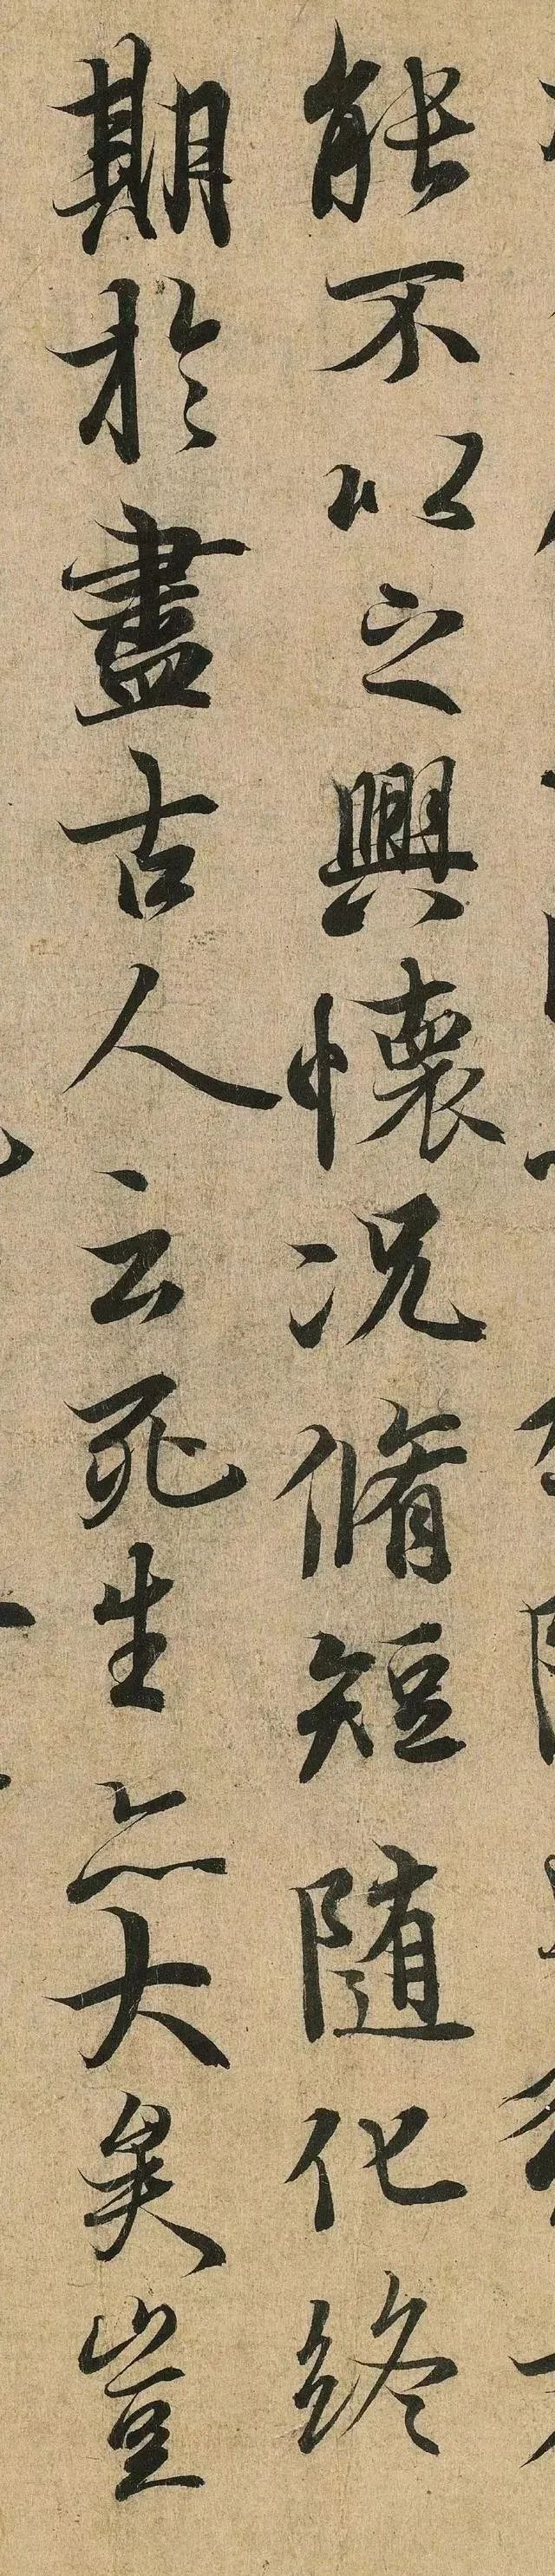 能不以之興懷況脩短隨化終
期於盡古人云死生亦大矣豈